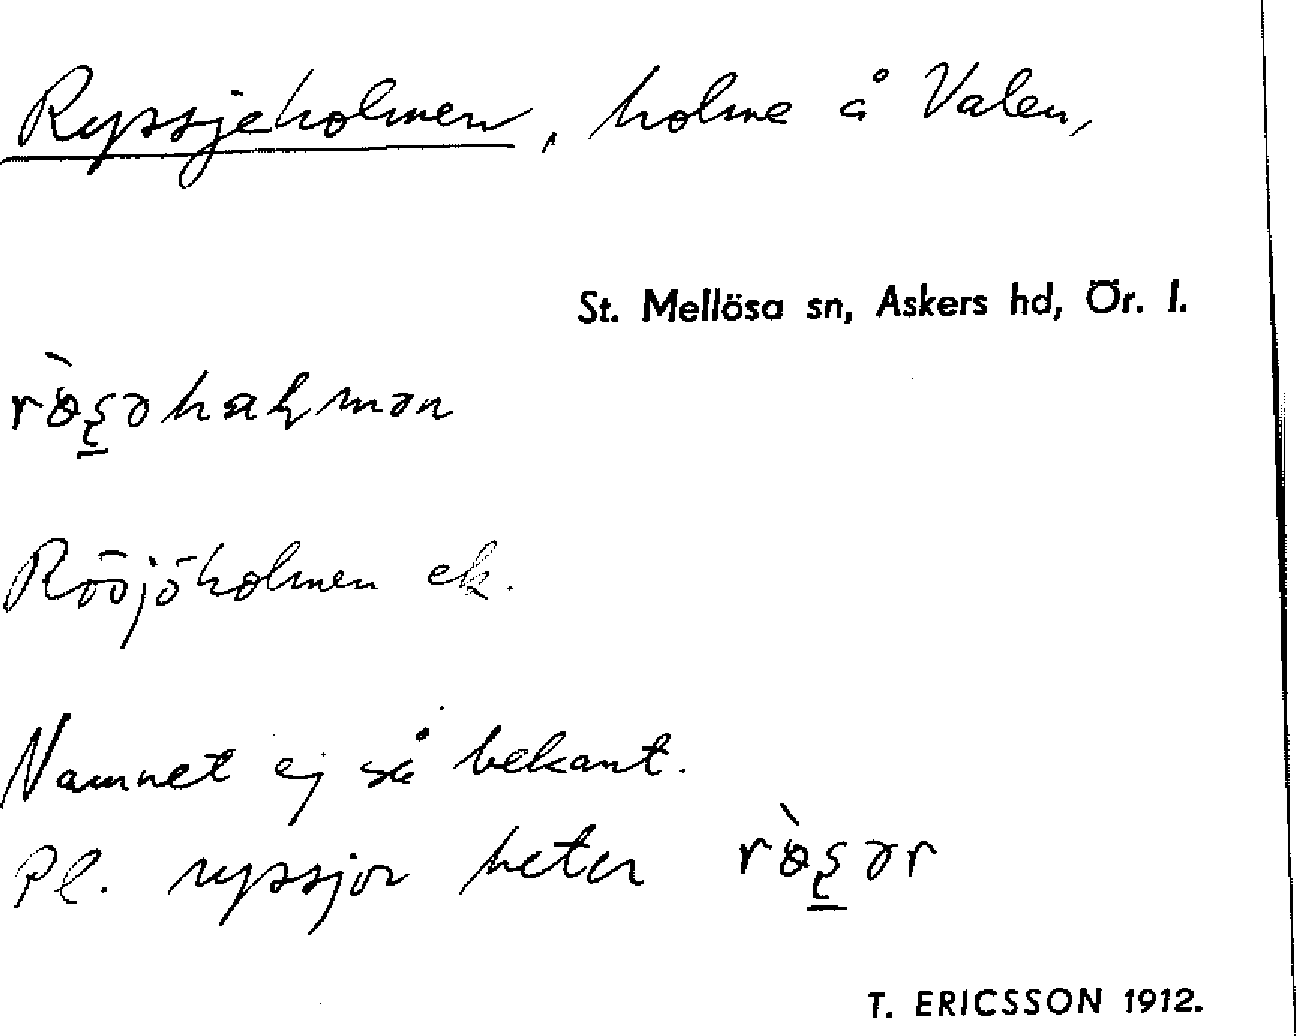 Ryssjeholmen, holme å Valen,
St. Mellösa sn, Askers hd, Ör. l.
Rösjöholmen ek.
Namnet ej så bekant.
Pl. ryssjor heter
T. ERICSSON 1912.